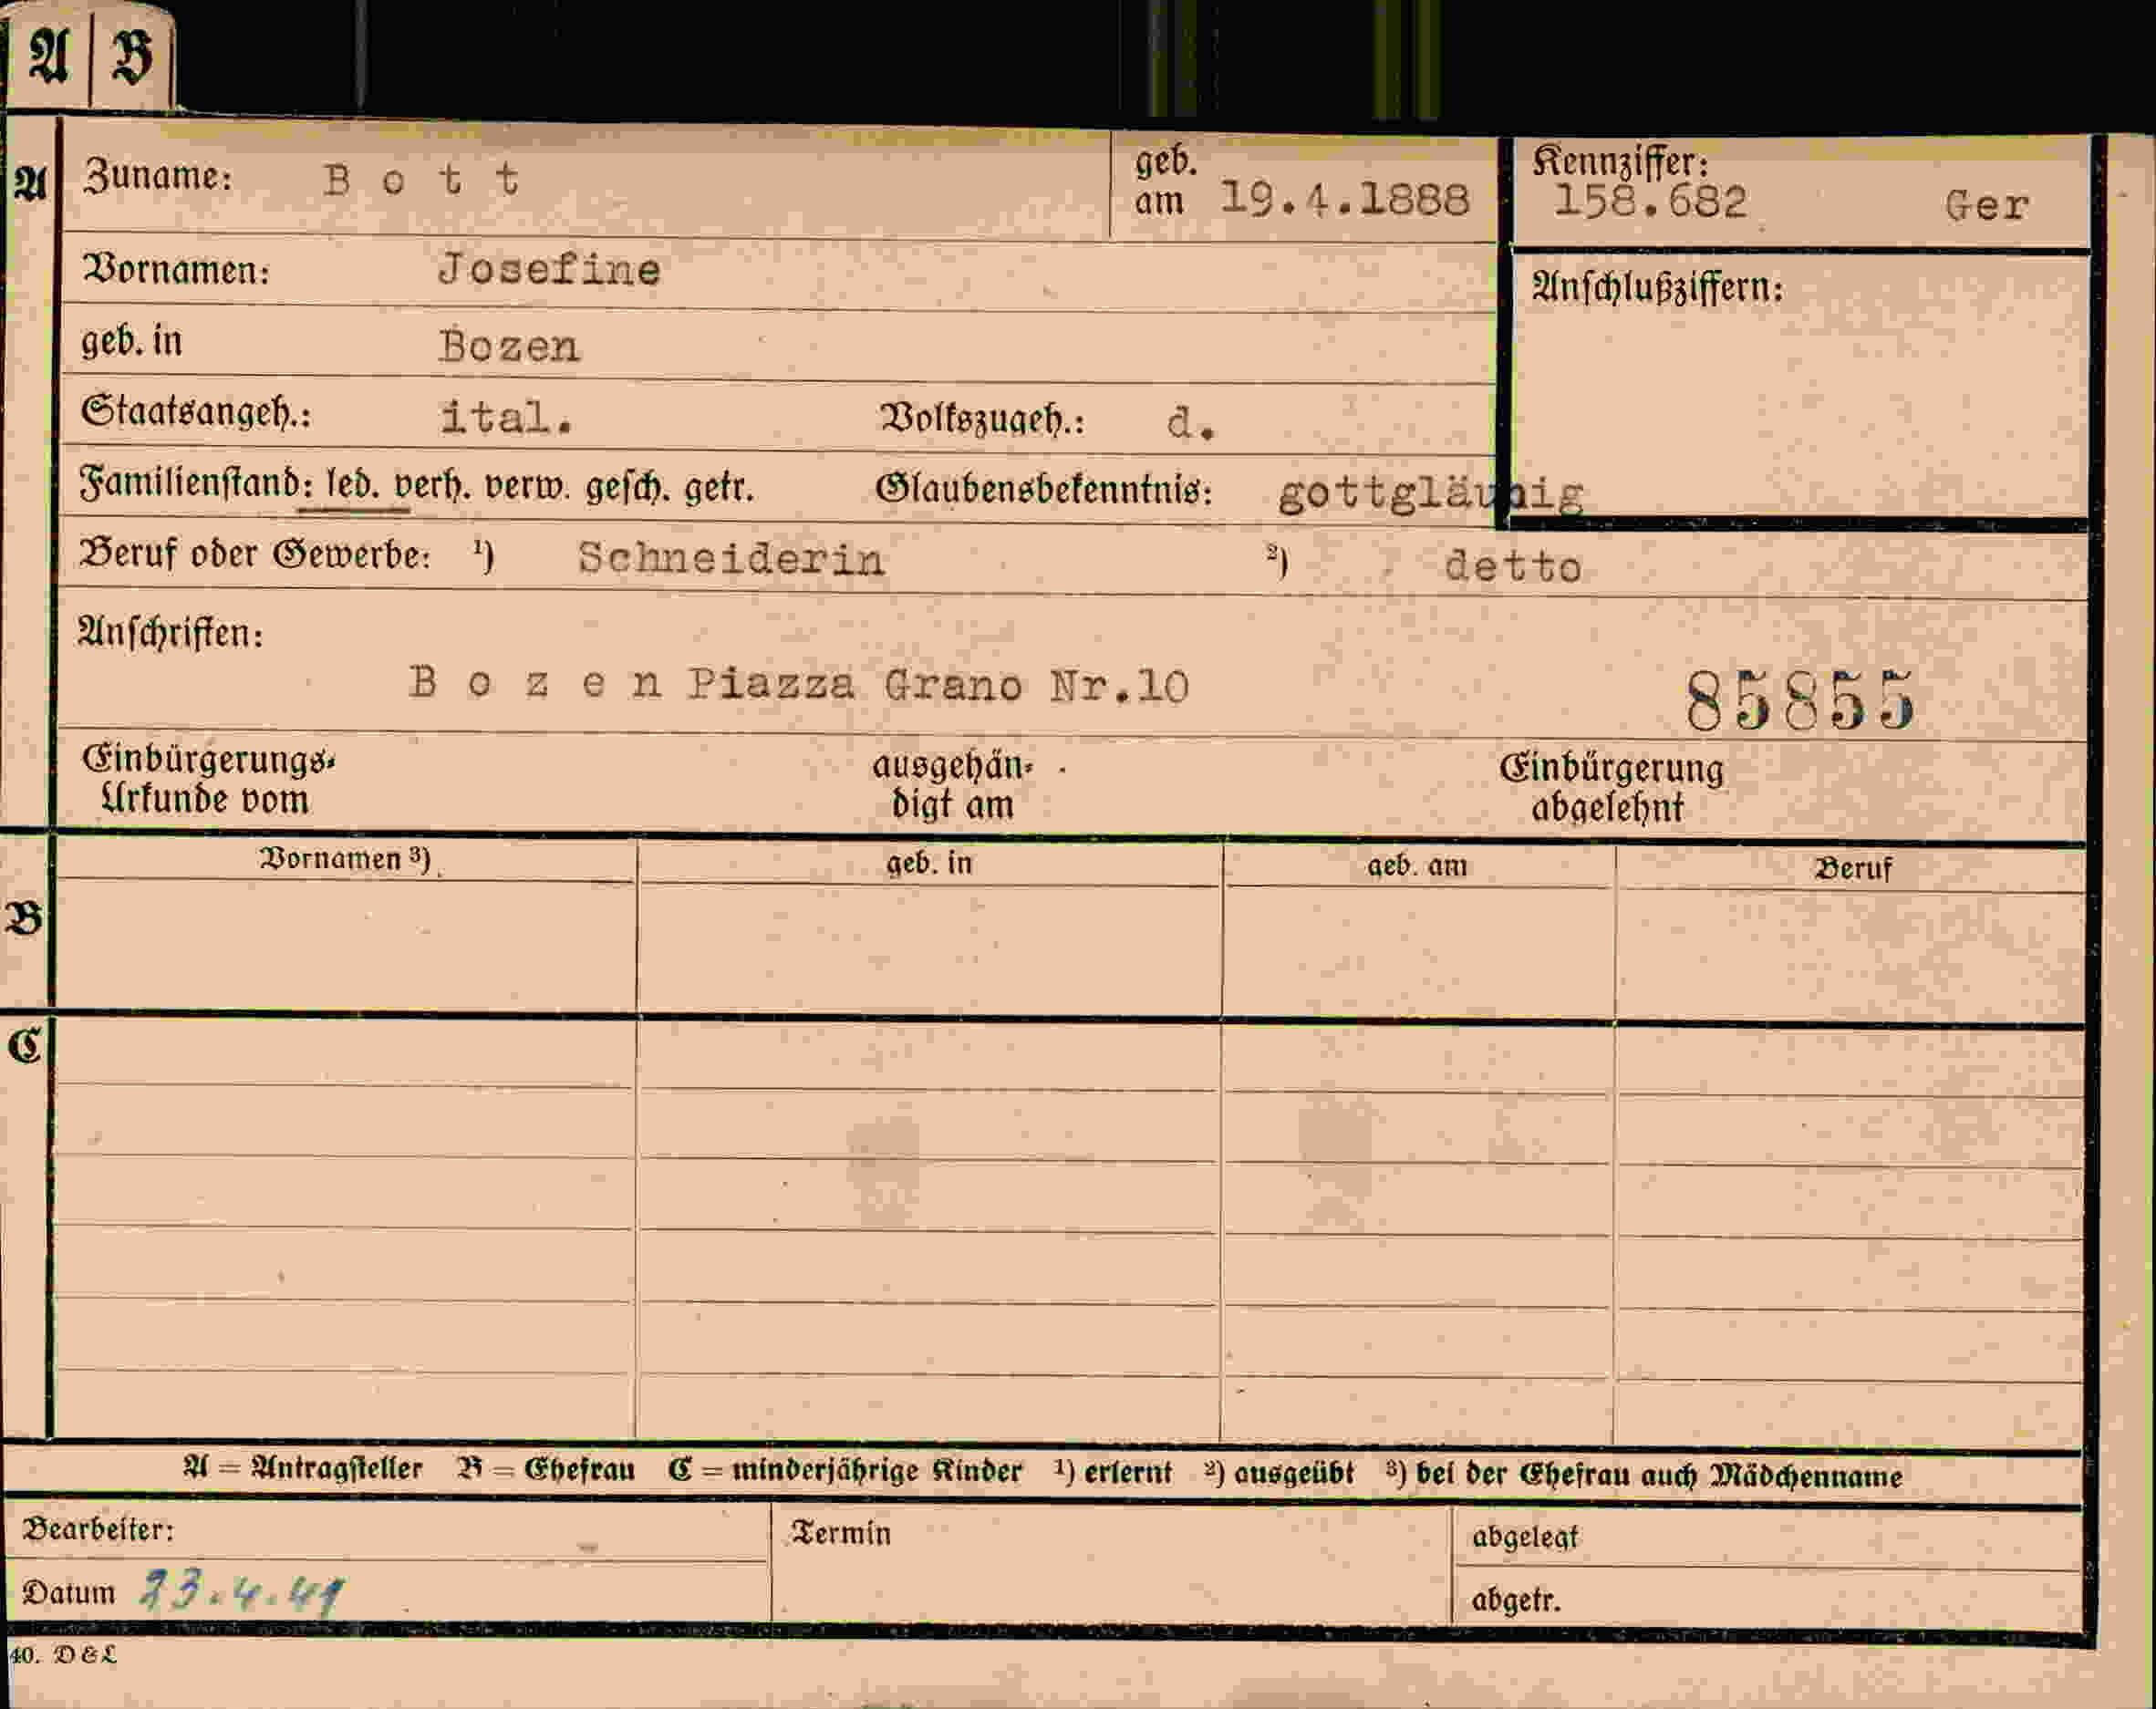 A B
A Zuname: Bott geb. am 19.4.1888 Kennziffer: 158.682 Ger
Vornamen: Josefine Anschlußziffern:
geb. in Bozen
Staatsangeh.: ital. Volkszugeh.: d.
Familienstand: led. verh. verw. gesch. getr. Glaubensbekenntnis: gottgläubig
Beruf oder Gewerbe: ¹) Schneiderin ²) detto
Anschriften:
Bozen Piazza Grano Nr.10 85855
Einbürgerungs- ausgehän- Einbürgerung
Urkunde vom digt am abgelehnt
Vornamen ³) geb. in geb. am Beruf
B
C
A = Antragsteller B = Ehefrau C = minderjährige Kinder ¹) erlernt ²) ausgeübt ³) bei der Ehefrau auch Mädchenname
Bearbeiter: Termin abgelegt
Datum 23.4.41 abgetr.
40. D&L